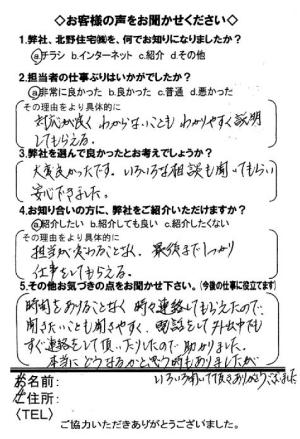 ◇お客様の声をお聞かせください◇
1.弊社、北野住宅㈱を、何でお知りになりましたか？
ⓐチラシ b.インターネット c.紹介 d.その他
2.担当者の仕事ぶりはいかがでしたか？
ⓐ非常に良かった b.良かった c.普通 d.悪かった
その理由をより具体的に
対応が良く わからないことも わかりやすく説明
してもらえる。
3.弊社を選んで良かったとお考えでしょうか？
大変良かったです。いろいろな相談も聞いてもらい
安心できました。
4.お知り合いの方に、弊社をご紹介いただけますか？
ⓐ紹介したい b.紹介しても良い c.紹介したくない
その理由をより具体的に
担当が変わることなく、最後までしっかり
仕事をしてもらえる。
5.その他お気づきの点をお聞かせ下さい。(今後の仕事に役立てます)
時間をあけることなく 時々連絡してもらえたので
聞きたいことも聞きやすく、電話をして外出中でも
すぐ連絡をして頂いたりしたので助かりました。
本当にどうなるかと思う時もありましたが
いろいろ聞いて頂きありがとうございました
お名前:
ご住所:
〈TEL〉
ご協力いただきありがとうございました。